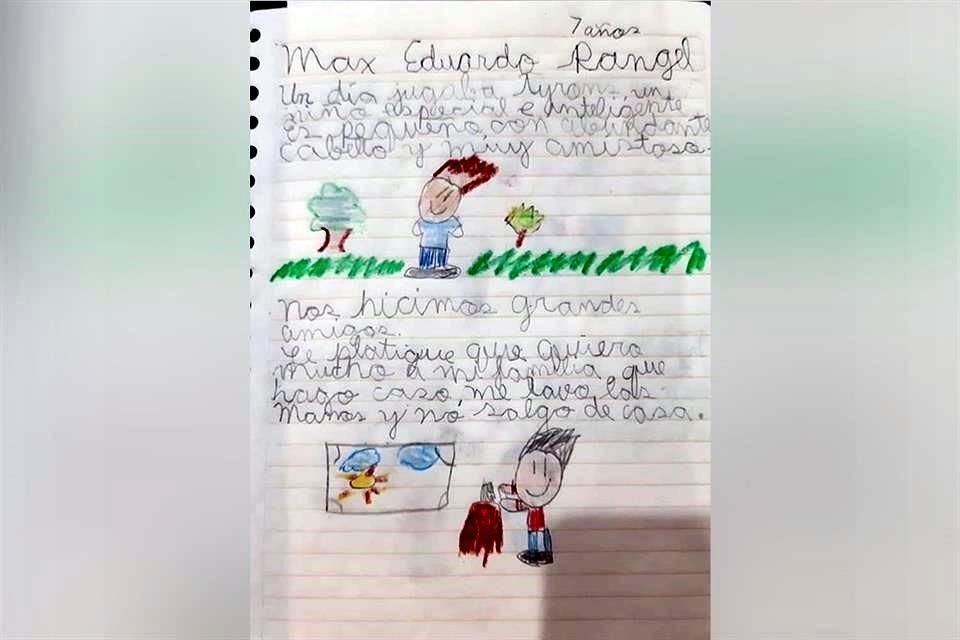 7 años
Max Eduardo Rangel
Un día jugaba tyrons, un
niño especial e inteligente
Es pequeño con abundante
cabello y muy amistoso.
Nos hicimos grandes
amigos.
Le platique que quiero
mucho a mi familia que
hago caso, me lavo las
manos y no salgo de casa.